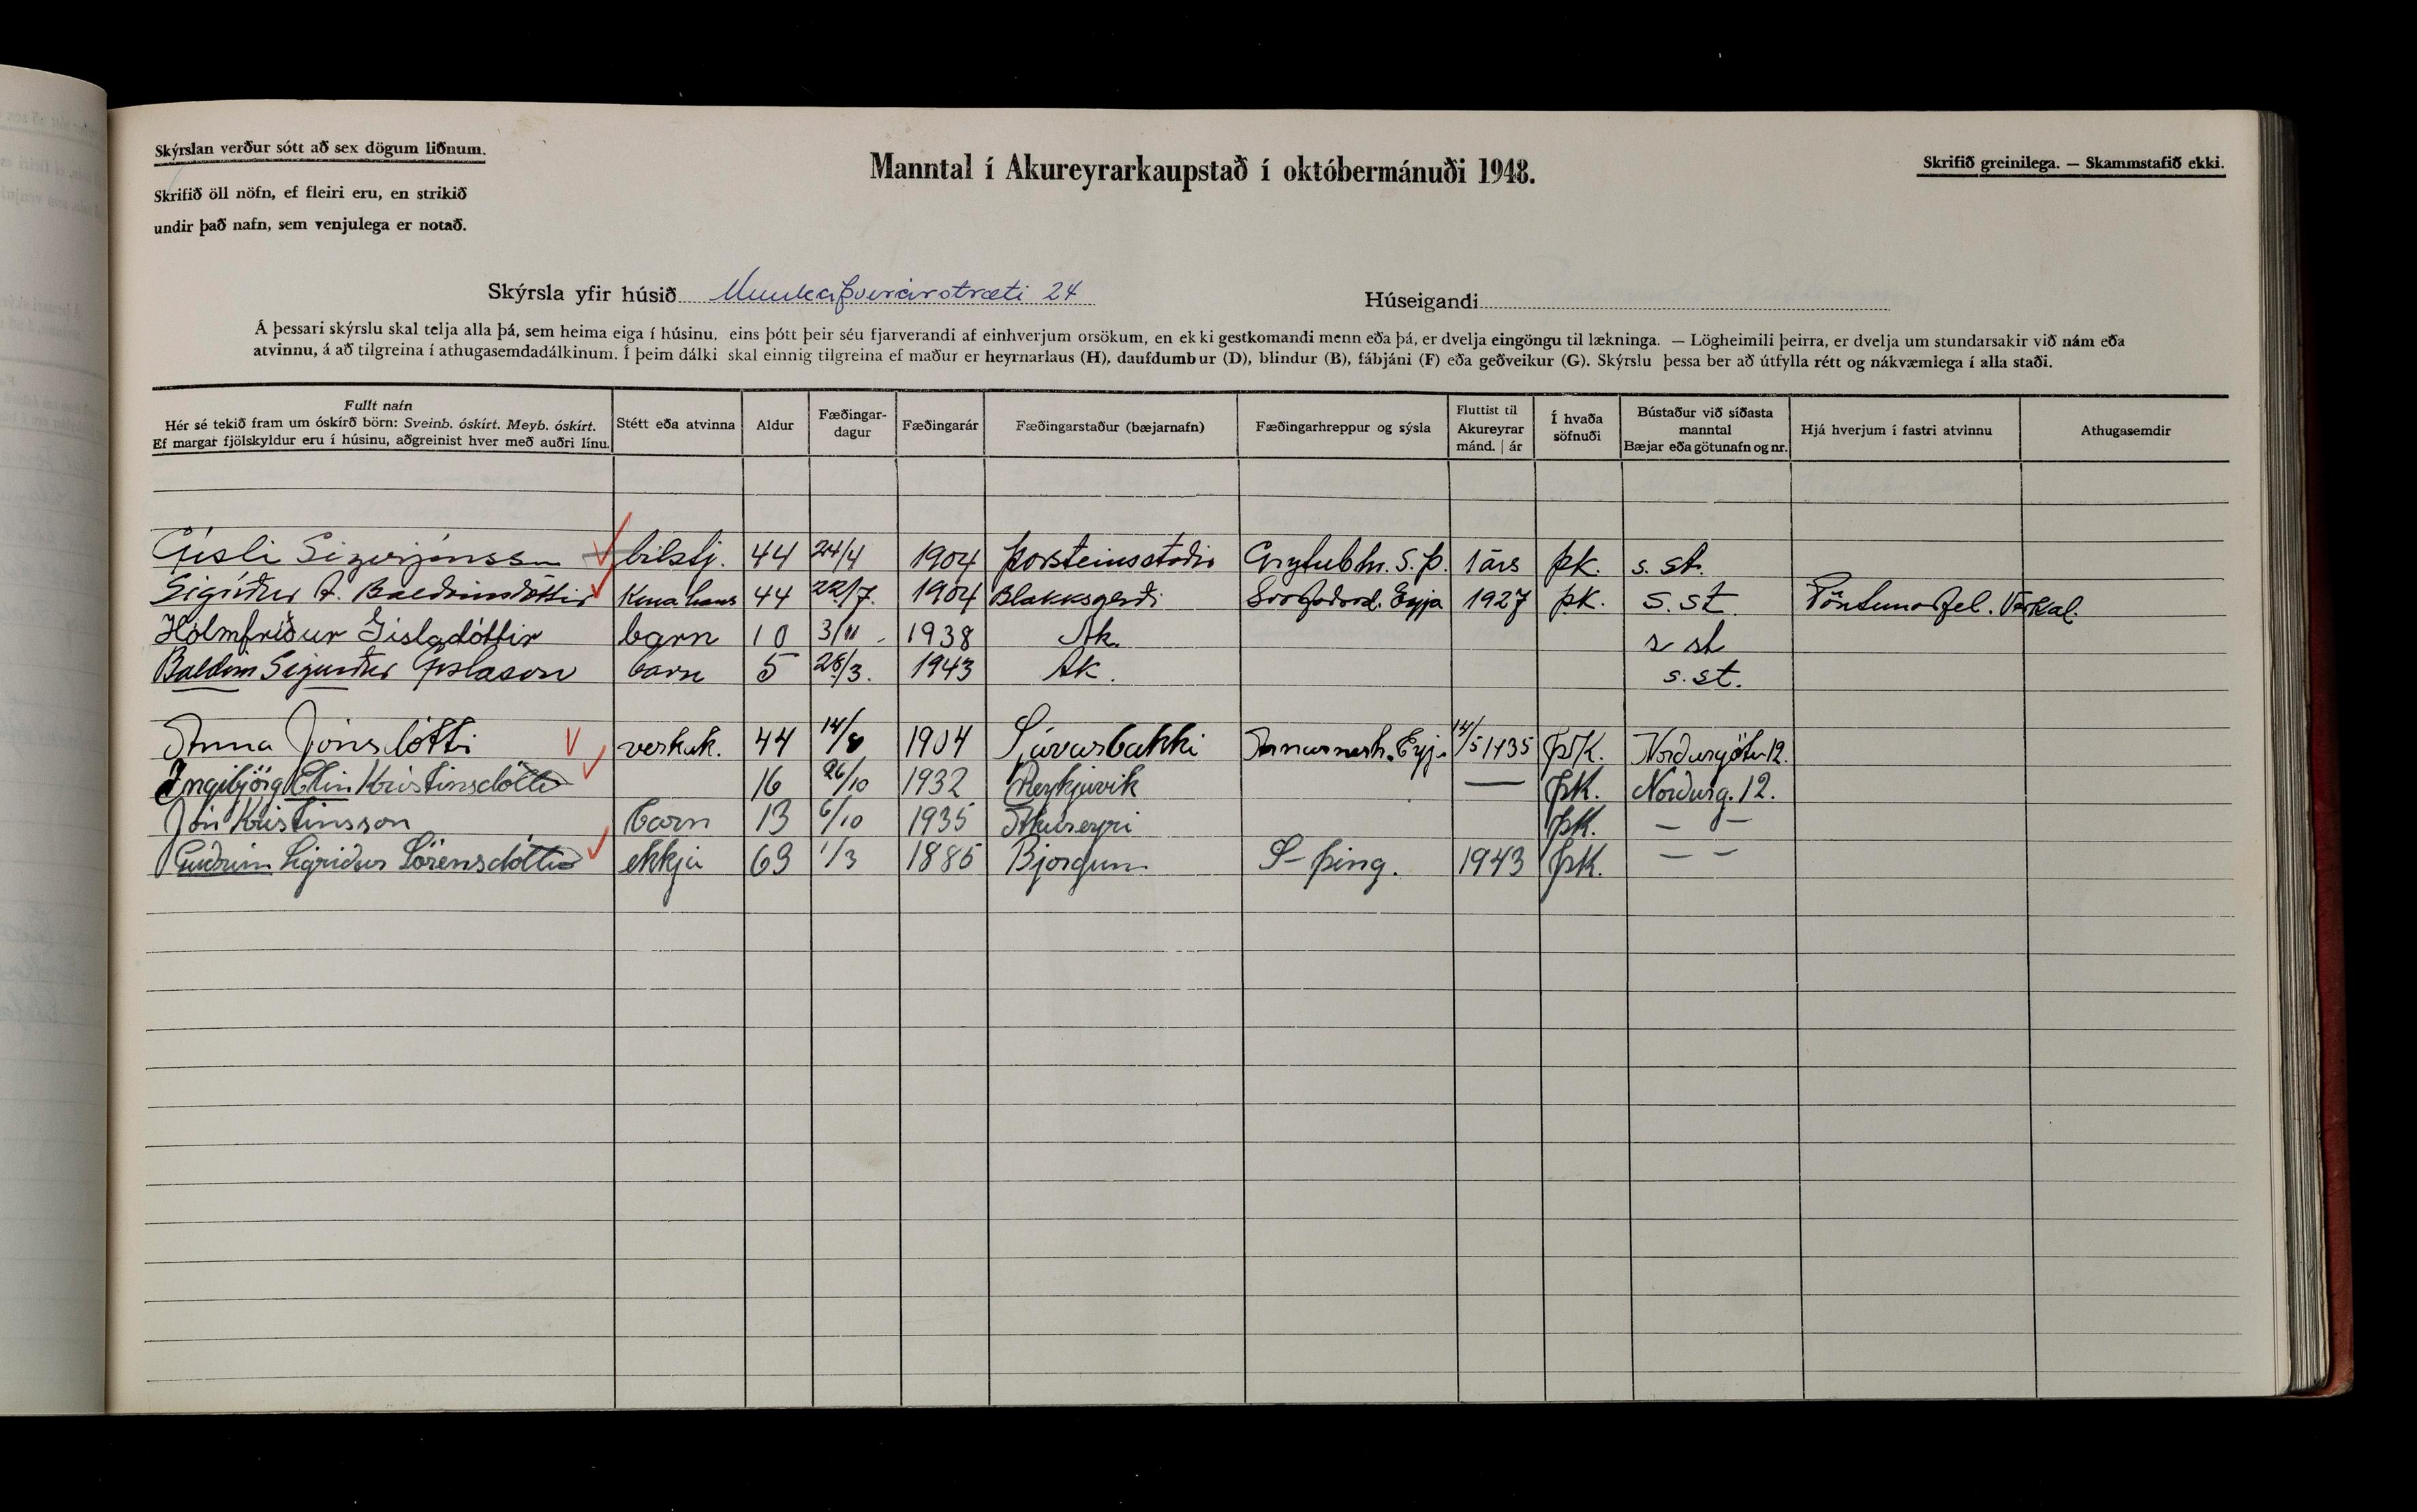 Skýrslan verður sótt að sex dögum liðnum.
Skrifið öll nöfn, ef fleiri eru, en strikið
undir það nafn, sem venjulega er notað.
Manntal í Akureyrarkaupstað í októbermánuði 1948.
Skrifið greinilega. — Skammstafið ekki.
Skýrsla yfir húsið Munkaþverárstræti 24
Húseigandi
Á þessari skýrslu skal telja alla þá, sem heima eiga í húsinu, eins þótt þeir séu fjarverandi af einhverjum orsökum, en ekki gestkomandi menn eða þá, er dvelja eingöngu til lækninga. — Lögheimili þeirra, er dvelja um stundarsakir við nám eða
atvinnu, á að tilgreina í athugasemdadálkinum. Í þeim dálki skal einnig tilgreina ef maður er heyrnarlaus (H), daufdumbur (D), blindur (B), fábjáni (F) eða geðveikur (G). Skýrslu þessa ber að útfylla rétt og nákvæmlega í alla staði.
Fullt nafn
Hér sé tekið fram um óskírð börn: Sveinb. óskírt. Meyb. óskírt.
Ef margar fjölskyldur eru í húsinu, aðgreinist hver með auðri línu.
Stétt eða atvinna
Aldur
Fæðingar-
dagur
Fæðingarár
Fæðingarstaður (bæjarnafn)
Fæðingarhreppur og sýsla
Fluttist til
Akureyrar
mánd. | ár
Í hvaða
söfnuði
Bústaður við síðasta
manntal
Bæjar eða götunafn og nr.
Hjá hverjum í fastri atvinnu
Athugasemdir
Gísli Sigurjónsson bílstj. 44 24/4 1904 Þorsteinsstaðir Grýtubhr. S. Þ. 1 árs þk. s. st.
Sigríður A. Baldvinsdóttir Kona hans 44 22/7. 1904 Blakksgerði Eyja 1927 þk. s. st. Pöntunarfel. Verkal.
Hólmfríður Gísladóttir barn 10 3/11 1938 Ak. s st
Baldvin Sigurður Gíslason barn 5 26/3. 1943 Ak. s. st.
Anna Jónsdóttir verkak. 44 14/8 1904 Sjávarbakki Arnarnesh. Eyj. 14/5 1935 Þ.K. Norðurgötu 12.
Ingibjörg Elin Kristinsdóttir 16 26/10 1932 Reykjavík — ÞK. Norðurg. 12.
Jón Kristinsson barn 13 6/10 1935 Akureyri ÞK. — —
Guðrún Sigríður Sörensdóttir ekkja 63 1/3 1885 Björgum S-Þing. 1943 ÞK. — —